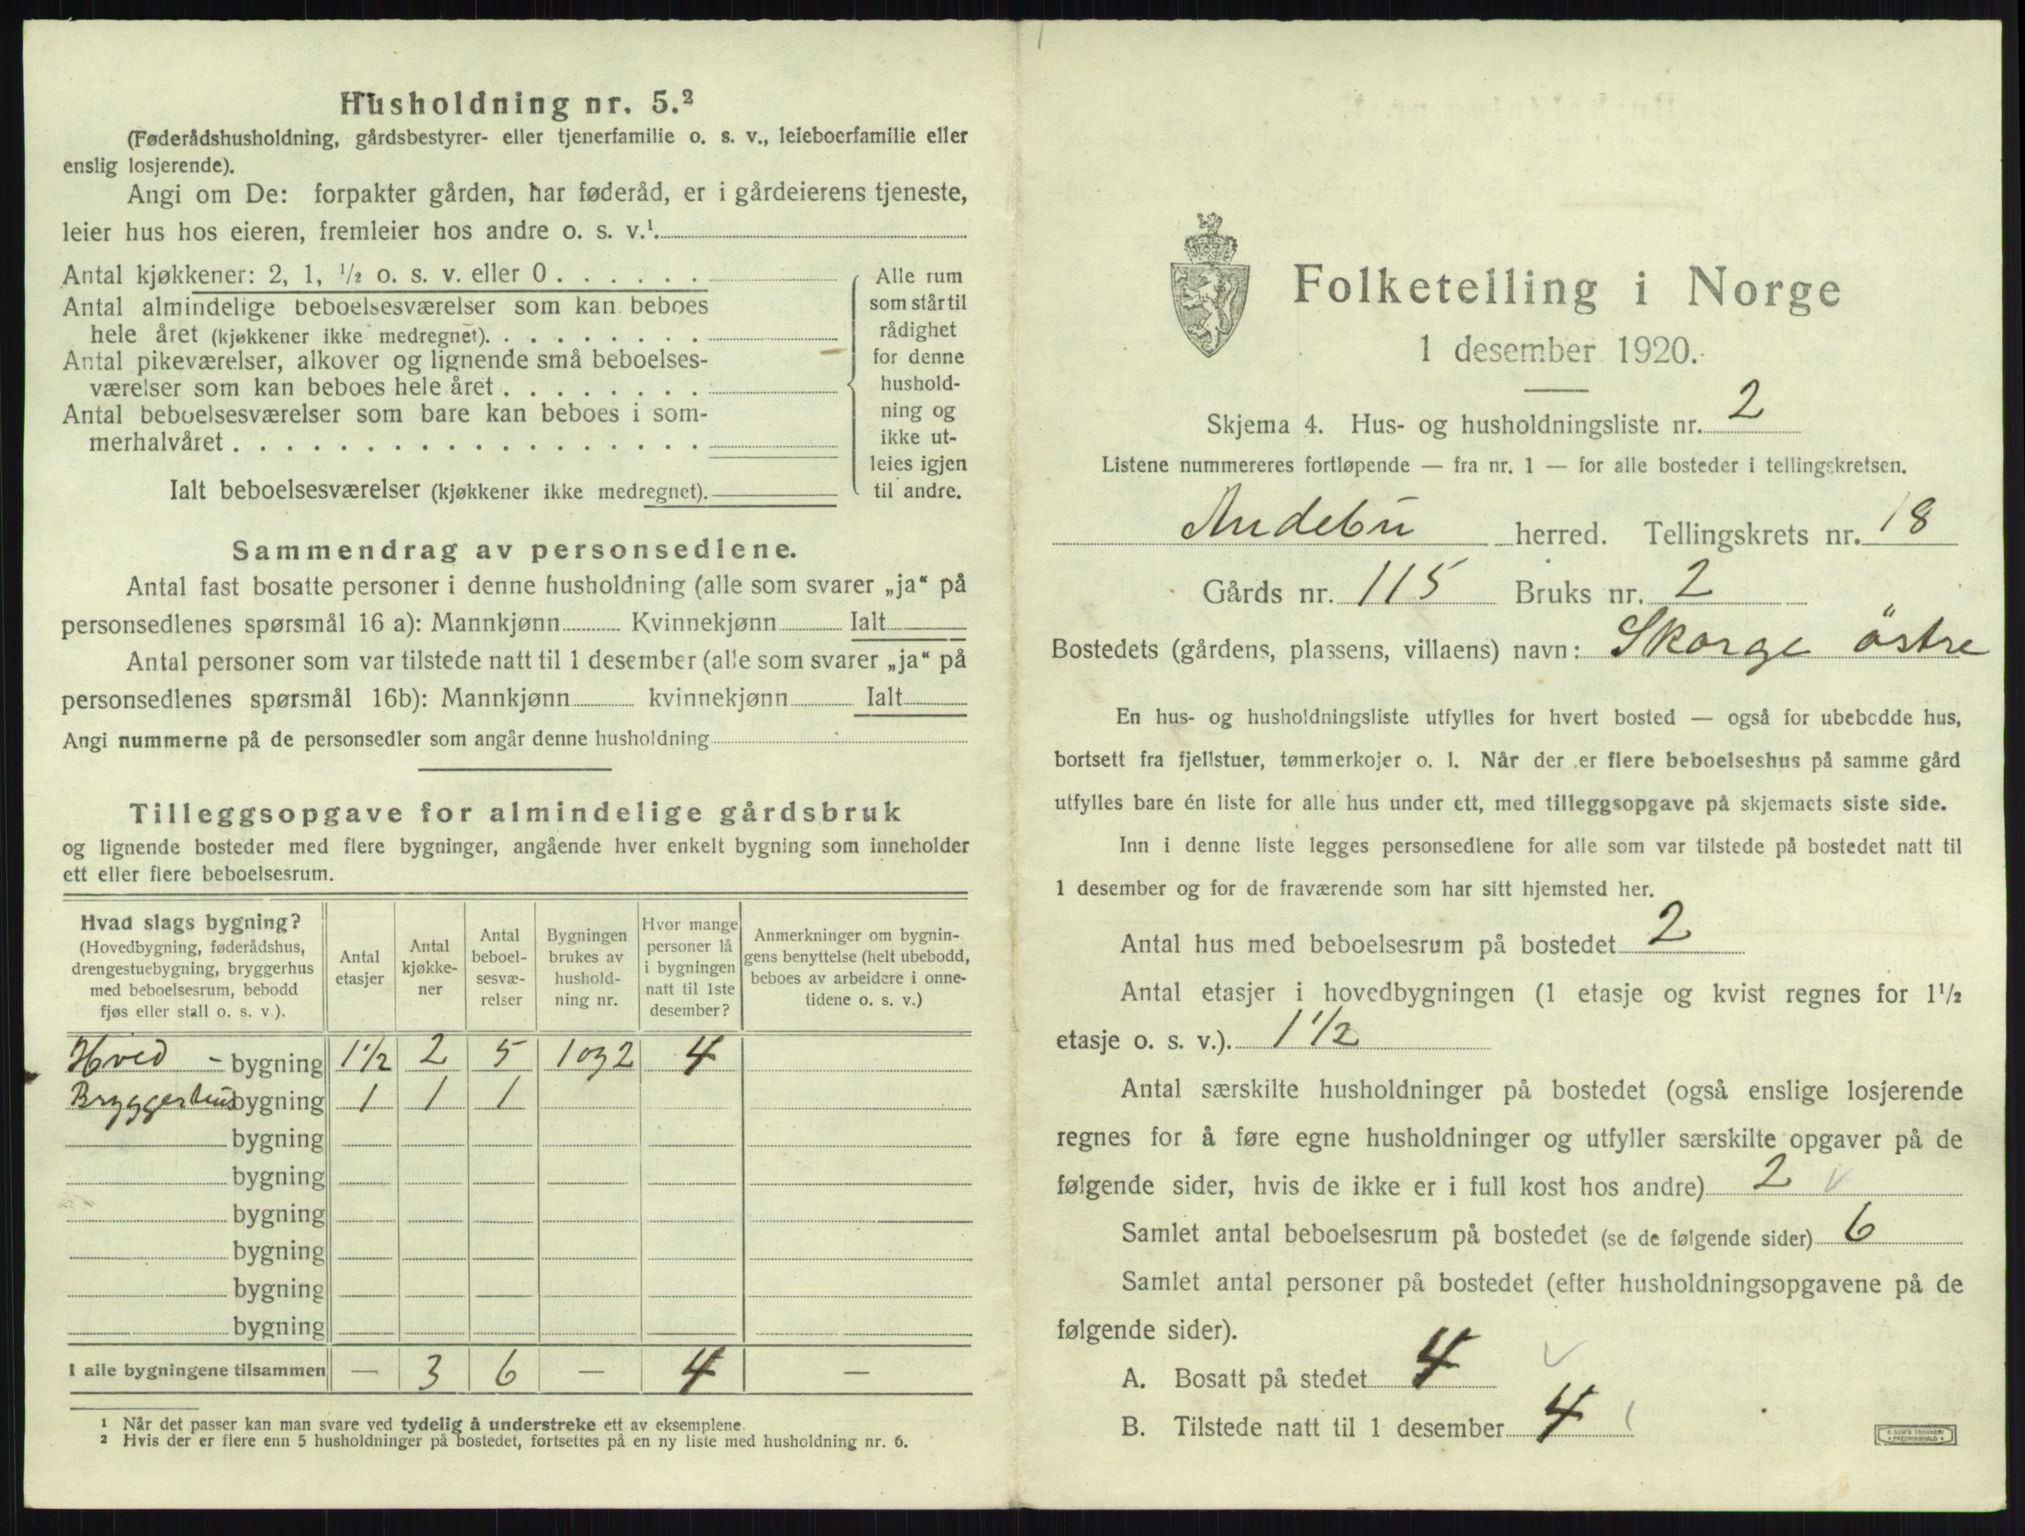 Husholdning nr. 5.²
(Føderådshusholdning, gårdsbestyrer- eller tjenerfamilie o. s. v., leieboerfamilie eller
enslig losjerende).
Angi om De: forpakter gården, har føderåd, er i gårdeierens tjeneste,
leier hus hos eieren, fremleier hos andre o. s. v.¹
Antal kjøkkener: 2, 1, ½ o. s. v. eller 0 . . . . . .
Antal almindelige beboelsesværelser som kan beboes
hele året (kjøkkener ikke medregnet). . . . . . . . .
Antal pikeværelser, alkover og lignende små beboelses-
værelser som kan beboes hele året . . . . . . . .
Antal beboelsesværelser som bare kan beboes i som-
merhalvåret . . . . . . . . . . . . . . . . . .
Ialt beboelsesværelser (kjøkkener ikke medregnet).
Alle rum
som står til
rådighet
for denne
hushold-
ning og
ikke ut-
leies igjen
til andre.
Sammendrag av personsedlene.
Antal fast bosatte personer i denne husholdning (alle som svarer „ja“ på
personsedlenes spørsmål 16 a): Mannkjønn Kvinnekjønn Ialt
Antal personer som var tilstede natt til 1 desember (alle som svarer „ja“ på
personsedlenes spørsmål 16b): Mannkjønn kvinnekjønn Ialt
Angi nummerne på de personsedler som angår denne husholdning
Tilleggsopgave for almindelige gårdsbruk
og lignende bosteder med flere bygninger, angående hver enkelt bygning som inneholder
ett eller flere beboelsesrum.
Hvad slags bygning?
(Hovedbygning, føderådshus,
drengestuebygning, bryggerhus
med beboelsesrum, bebodd
fjøs eller stall o. s. v ).
Antal
etasjer
Antal
kjøkke-
ner
Antal
beboel-
sesvæ-
relser
Bygningen
brukes av
hushold-
ning nr.
Hvor mange
personer lå
i bygningen
natt til 1ste
desember?
Anmerkninger om bygnin-
gens benyttelse (helt ubebodd,
beboes av arbeidere i onne-
tidene o. s. v.)
Hved - bygning 1½ 2 5 1 og 2 4
Bryggerhus bygning 1 1 1
bygning
bygning
bygning
bygning
bygning
bygning
I alle bygningene tilsammen — 3 6 — 4 —
¹ Når det passer kan man svare ved tydelig å understreke ett av eksemplene.
² Hvis der er flere enn 5 husholdninger på bostedet, fortsettes på en ny liste med husholdning nr. 6.
Folketelling i Norge
1 desember 1920.
Skjema 4. Hus- og husholdningsliste nr. 2
Listene nummereres fortløpende — fra nr. 1 — for alle bosteder i tellingskretsen.
Andebu herred. Tellingskrets nr. 18
Gårds nr. 115 Bruks nr. 2
Bostedets (gårdens, plassens, villaens) navn: Skorge östre
En hus- og husholdningsliste utfylles for hvert bosted — også for ubebodde hus,
bortsett fra fjellstuer, tømmerkojer o. l. Når der er flere beboelseshus på samme gård
utfylles bare én liste for alle hus under ett, med tilleggsopgave på skjemaets siste side.
Inn i denne liste legges personsedlene for alle som var tilstede på bostedet natt til
1 desember og for de fraværende som har sitt hjemsted her.
Antal hus med beboelsesrum på bostedet 2
Antal etasjer i hovedbygningen (1 etasje og kvist regnes for 1½
etasje o. s. v.). 1½
Antal særskilte husholdninger på bostedet (også enslige losjerende
regnes for å føre egne husholdninger og utfyller særskilte opgaver på de
følgende sider, hvis de ikke er i full kost hos andre) 2
Samlet antal beboelsesrum på bostedet (se de følgende sider) 6
Samlet antal personer på bostedet (efter husholdningsopgavene på de
følgende sider).
A. Bosatt på stedet 4
B. Tilstede natt til 1 desember 4